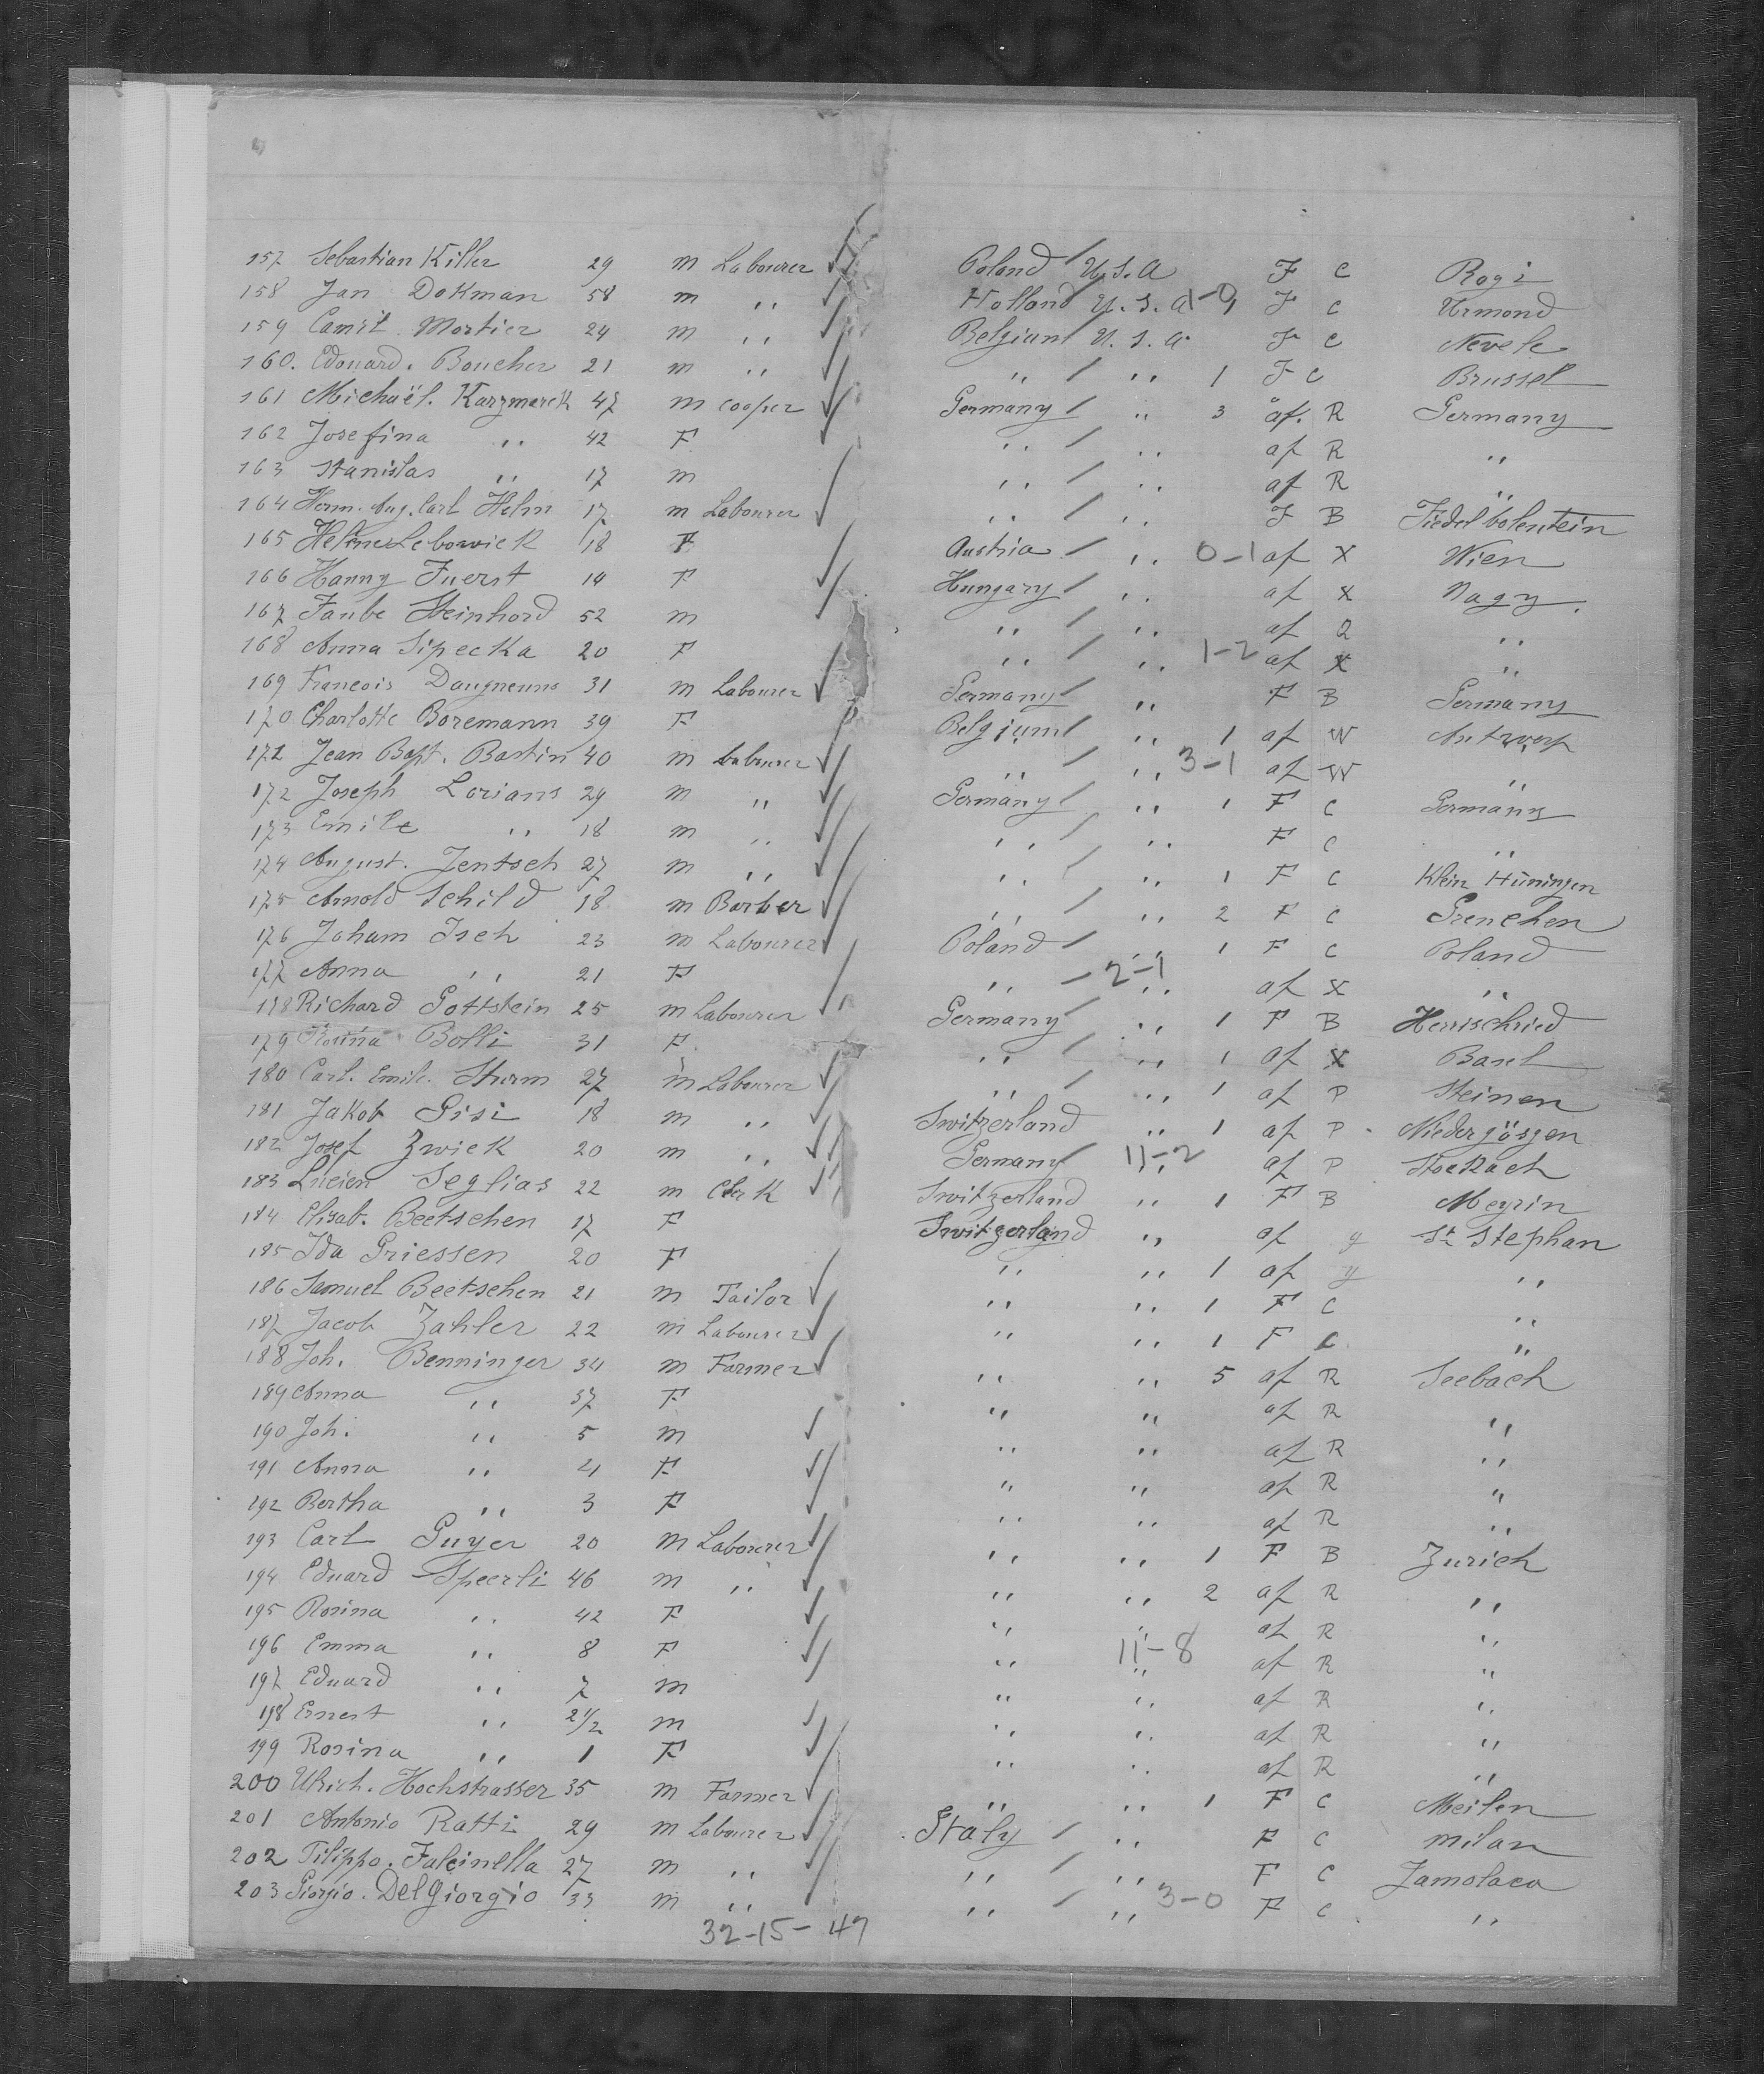 157 Sebastian Killer 29 m Labourer Poland U.S.A F C Rogi
158 Jan Dokman 58 m ,, Holland U.S.A 1-0 F C Urmond
159 Camil Mortier 24 m ,, Belgium U.S.A F C Nevele
160. Edouard. Boucher 21 m ,, ,, ,, 1 F C Brussel
161 Michaël. Karzmarek 47 m cooper Germany ,, 3 af. R Germany
162 Josefina ,, 42 F ,, ,, af R ,,
163 Stanislas ,, 17 m ,, ,, af R ,,
164 Herm. Aug. Carl Helm 17 m Labourer ,, ,, F B
165 Helene Lebowick 18 F Austria ,, 0-1 af X Wien
166 Hanny Fuerst 14 F Hungary ,, af X Nagy.
167 Faube Steinhord 52 m ,, ,, af Q ,,
168 Anna Sipecka 20 F ,, ,, 1-2 af X ,,
169 Francois 31 m Labourer Germany ,, F B Germany
170 Charlotte Boremann 39 F Belgium ,, 1 af W Antwerp
171 Jean Bapt. Bastin 40 m Labourer ,, ,, 3-1 af W ,,
172 Joseph Lorians 29 m ,, Germany ,, 1 F C Germany
173 Emile ,, 18 m ,, ,, ,, F C ,,
174 August. Jentsch 27 m ,, ,, ,, 1 F C Klein Hüningen
175 Arnold Schild 18 m Barber ,, ,, 2 F C Grenchen
176 Joham Isch 23 m Labourer Poland ,, 1 F C Poland
177 Anna ,, 21 F ,, 2-1 ,, af X ,,
178 Richard Gottstein 25 m Labourer Germany ,, 1 F B Herrischried
179 Rosina Bolli 31 F ,, ,, 1 af X Basel
180 Carl. Emile. Sturm 27 m Labourer ,, ,, 1 af P Steinen
181 Jakob Gisi 18 m ,, Switzerland ,, 1 af P Niedergösgen
182 Josef Zwick 20 m ,, Germany 11-2 ,, af P Stockach
183 Lucien Seglias 22 m Clerk Switzerland ,, 1 F B Meyrin
184 Elisab. Beetschen 17 F Switzerland ,, af y St Stephan
185 Ida Griessen 20 F ,, ,, 1 af y ,,
186 Samuel Beetschen 21 m Tailor ,, ,, 1 F C ,,
187 Jacob Zahler 22 m Labourer ,, ,, 1 F C ,,
188 Joh. Benninger 34 m Farmer ,, ,, 5 af R Seebach
189 Anna ,, 37 F ,, ,, af R ,,
190 Joh. ,, 5 m ,, ,, af R ,,
191 Anna ,, 4 F ,, ,, af R ,,
192 Bertha ,, 3 F ,, ,, af R ,,
193 Carl Guyer 20 m Labourer ,, ,, 1 F B Zurich
194 Eduard Speerli 46 m ,, ,, ,, 2 af R ,,
195 Rosina ,, 42 F ,, ,, af R ,,
196 Emma ,, 8 F ,, 11-8 ,, af R ,,
197 Eduard ,, 7 m ,, ,, af R ,,
198 Ernest ,, 2 1/2 m ,, ,, af R ,,
199 Rosina ,, 1 F ,, ,, af R ,,
200 Ulrich. Hochstrasser 35 m Farmer ,, ,, 1 F C Meilen
201 Antonio Ratti 29 m Labourer Italy ,, F C Milan
202 Filippo. Falcinella 27 m ,, ,, ,, F C Zamolaco
203 Giorgio. DelGiorgio 33 m ,, ,, ,, 3-0 F C ,,
32-15-47